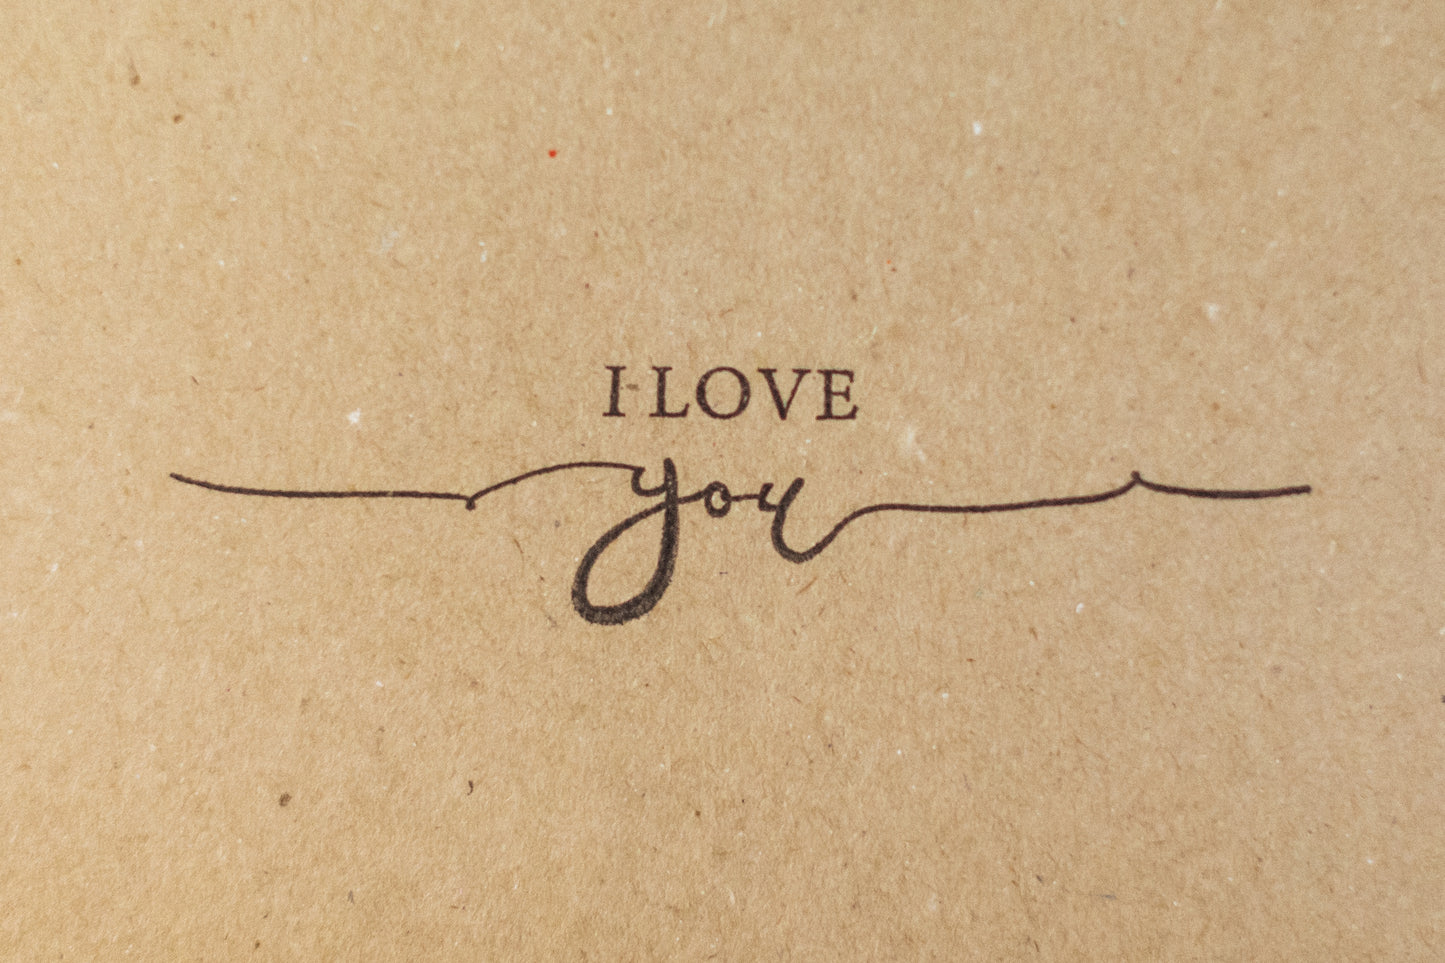 I LOVE
you